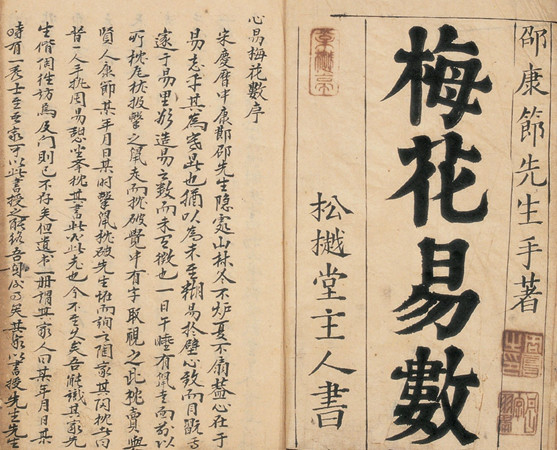 邵康節先生手著
梅花易數
松樾堂主人書
心易梅花數序
宋慶曆中康節邵先生隐處山林冬不炉夏不扇葢心在于
易忘乎其為寒暑也猶以為未至糊易於壁心致而目玩焉
邃于易理欲造易之数而未有徵也一日午睡有鼠走而前以
所枕瓦枕投擊之鼠走而枕破覺中有字取視之此枕賣與
賢人康節某年月日某時擊鼠枕破先生怪而詢之陶家其陶枕者曰
昔一人手执周易憩坐举枕其書此必此老也今不至久矣吾能識其家先
生偕陶往訪焉及門則已不存矣但遺書一册謂其家人曰某年月日某
時有一秀士至吾家可以此書授之能終吾身矣其家以書授先生先生